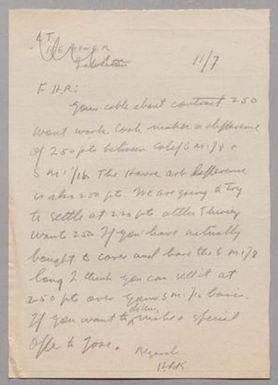 AT
11/7
F.H.R:
Your cable about contract 250
wont work. Cook makes a difference
of 250 pts between
5 M 1/16. The Havre arb difference
is also 250 pt. We are going to try
to settle at 225 pts altho
want 250 If you have actually
bought to cover and have the 5 M 1/8
long I think you can sell it at
250 pts over your 5 M 1/16 basis.
If you want to make a special
offer to Jose.
Regards
HKK